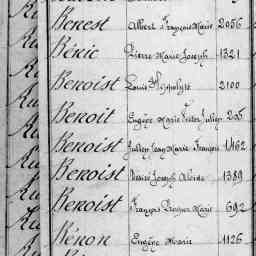 Benest Albert François Marie 2056
Béric Pierre Marie Joseph 1321
Benoist Louis Hippolyte 2100
Benoit Eugène Marie Victor Julien 205
Benoist Julien Jean Marie François 1462
Benoist Désiré Joseph Aloïse 1389
Benoist François Prosper Marie 692
Bénon Eugène Marie 1126